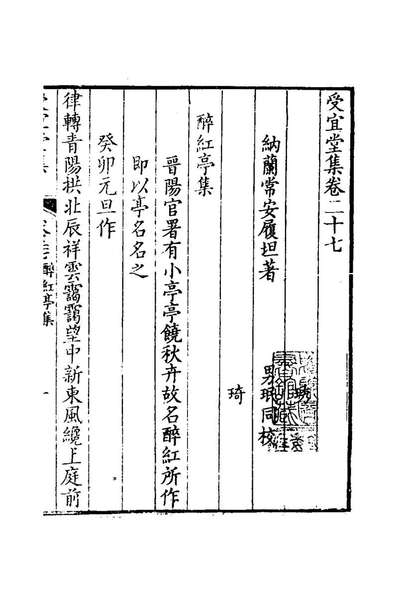 受宜堂集卷二十七
納蘭常安履坦著
男珉同校
琦
醉紅亭集
晉陽官署有小亭亭饒秋卉故名醉紅所作
即以亭名名之
癸卯元旦作
律轉青陽拱北辰祥雲靄靄望中新東風纔上庭前
醉紅亭集
一